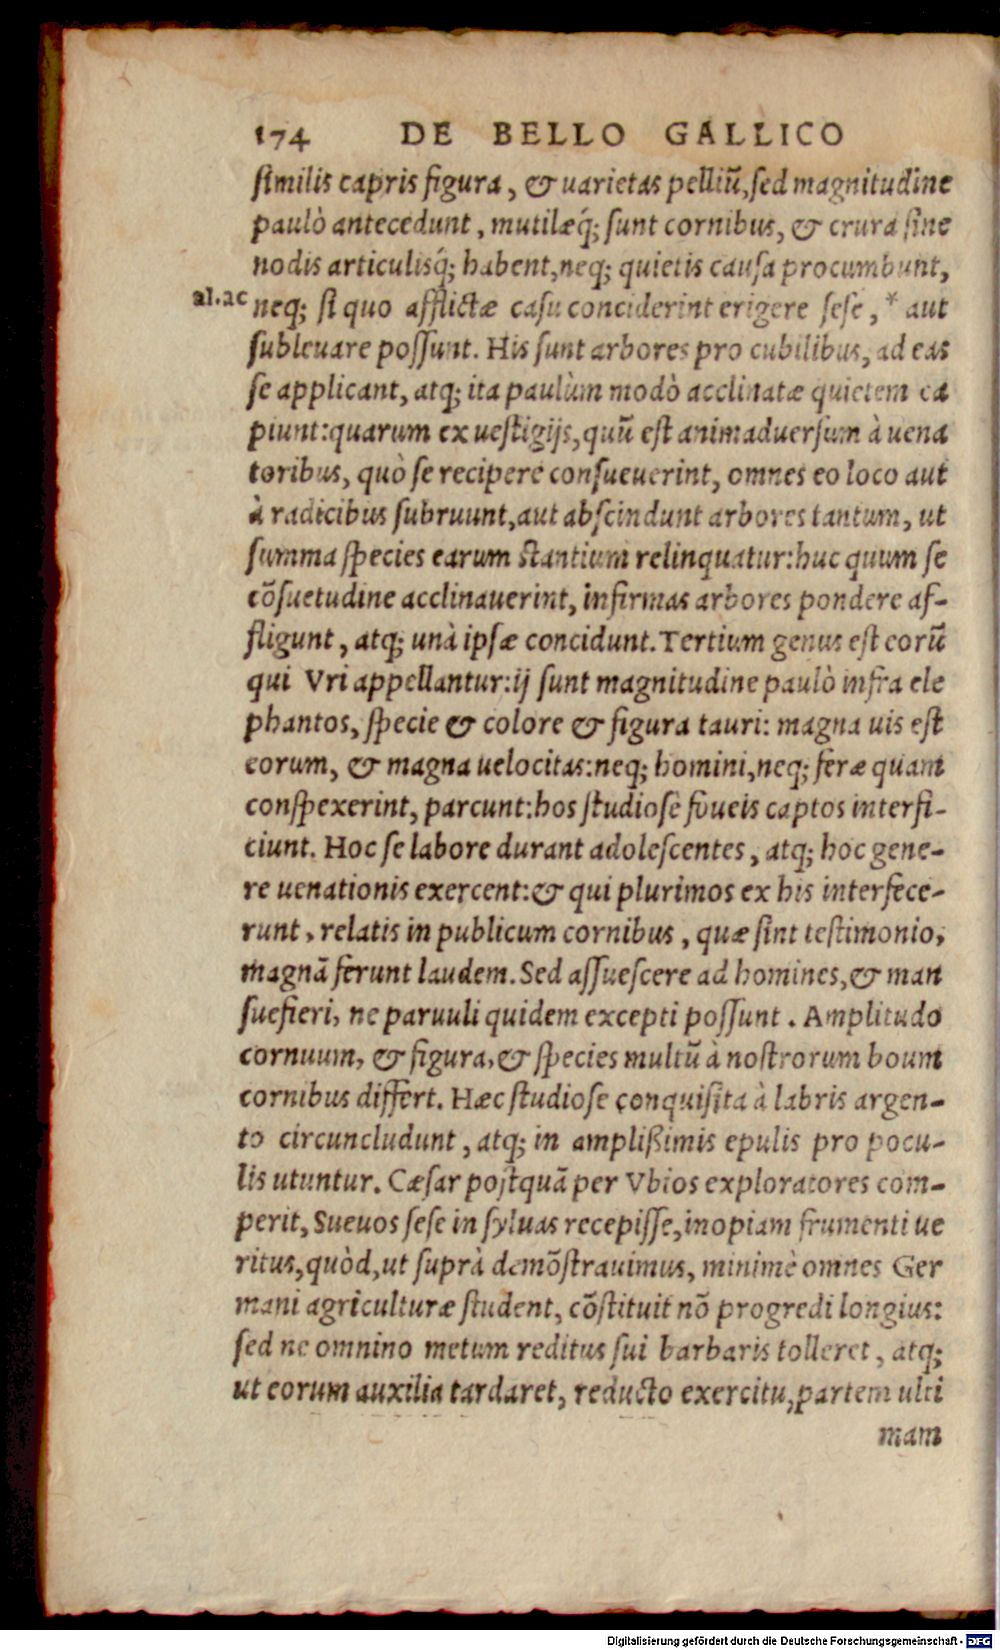 174 DE BELLO GALLICO
ſimilis capris figura, & uarietas pelliũ, ſed magnitudine
paulò antecedunt, mutilæq́; ſunt cornibus, & crura ſine
nodis articulisq́; habent, neq; quietis cauſa procumbunt,
al. ac
neq; ſi quo afflictæ caſu conciderint erigere ſeſe, * aut
ſubleuare poſſunt. His ſunt arbores pro cubilibus, ad eas
ſe applicant, atq; ita paulùm modò acclinatæ quietem ca
piunt: quarum ex ueſtigijs, quũ eſt animaduerſum à uena
toribus, quò ſe recipere conſueuerint, omnes eo loco aut
à radicibus ſubruunt, aut abſcindunt arbores tantum, ut
ſumma ſpecies earum ſtantium relinquatur: huc quum ſe
cõſuetudine acclinauerint, infirmas arbores pondere af-
fligunt, atq; unà ipſæ concidunt. Tertium genus eſt eorũ
qui Vri appellantur: ij ſunt magnitudine paulò infra ele
phantos, ſpecie & colore & figura tauri: magna uis eſt
eorum, & magna uelocitas: neq; homini, neq; feræ quam
conſpexerint, parcunt: hos ſtudioſe foueis captos interfi-
ciunt. Hoc ſe labore durant adoleſcentes, atq; hoc gene-
re uenationis exercent: & qui plurimos ex his interfece-
runt, relatis in publicum cornibus, quæ ſint teſtimonio,
magnã ferunt laudem. Sed aſſueſcere ad homines, & man
ſuefieri, ne paruuli quidem excepti poſſunt. Amplitudo
cornuum, & figura, & ſpecies multũ à noſtrorum boum
cornibus differt. Hæc ſtudioſe conquiſita à labris argen-
to circuncludunt, atq; in ampliſſimis epulis pro pocu-
lis utuntur. Cæſar poſtquã per Vbios exploratores com-
perit, Sueuos ſeſe in ſyluas recepiſſe, inopiam frumenti ue
ritus, quòd, ut ſuprà demõſtrauimus, minimè omnes Ger
mani agriculturæ ſtudent, cõſtituit nõ progredi longius:
ſed ne omnino metum reditus ſui barbaris tolleret, atq;
ut eorum auxilia tardaret, reducto exercitu, partem ulti
mam
Digitalisierung gefördert durch die Deutsche Forschungsgemeinschaft - DFG